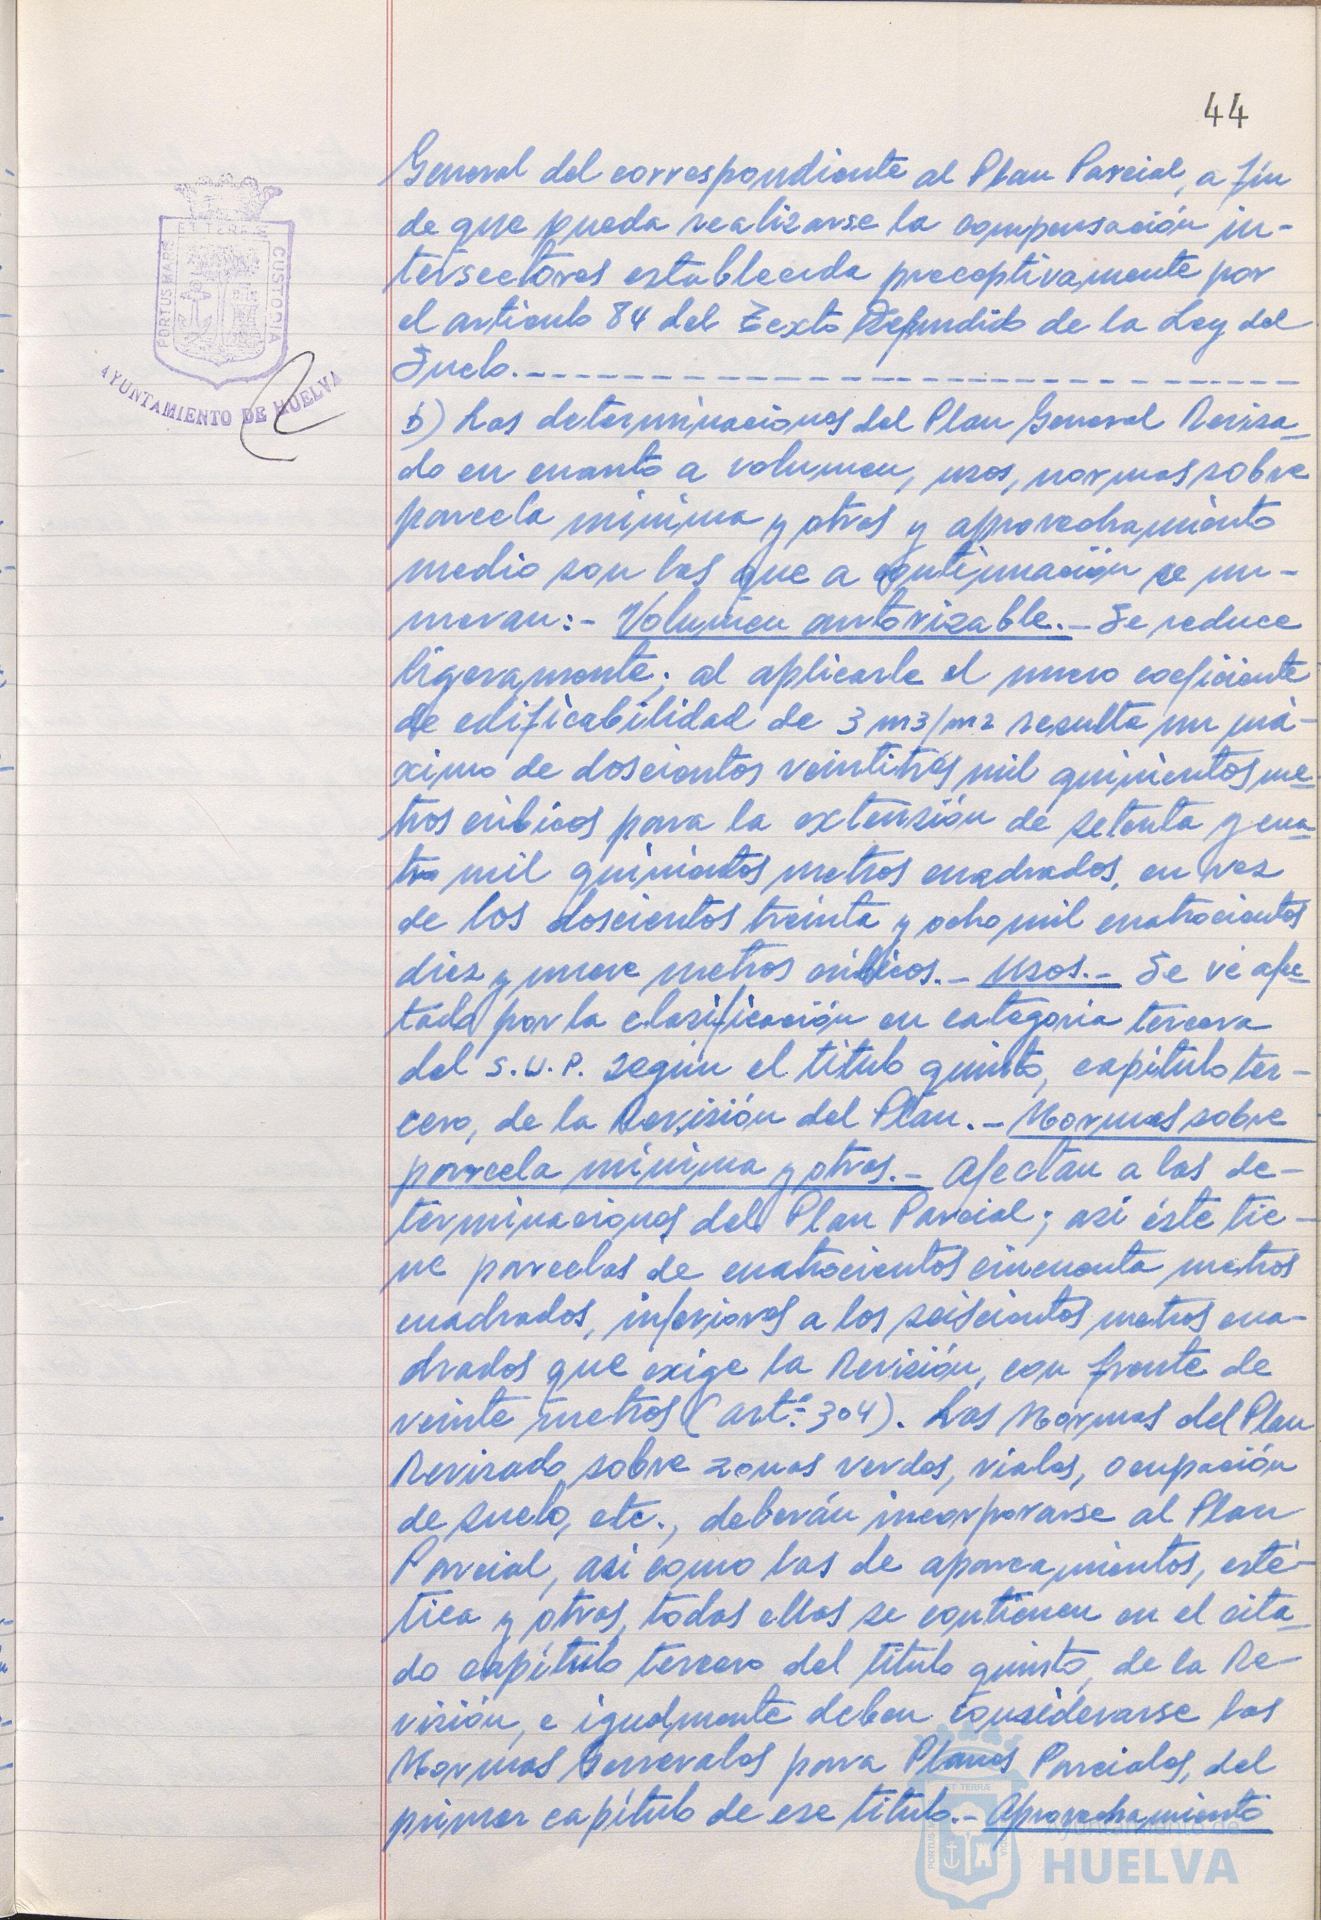 44
General del correspondiente al Plan Parcial, a fin
de que pueda realizarse la compensación in-
tersectores establecida preceptivamente por
el articulo 84 del Texto Refundido de la Ley del
Suelo.
b) Las determinaciones del Plan General Revisa-
do en cuanto a volumen, usos, normas sobre
parcela minima y otras y aprovechamiento
medio son las que a continuación se nu-
meran:- Volumen autorizable.- Se reduce
ligeramente; al aplicarle el nuevo coeficiente
de edificabilidad de 3 m3/m2 resulta un má-
ximo de doscientos veintitrés mil quinientos me-
tros cúbicos para la extensión de setenta y cua-
tro mil quinientos metros cuadrados, en vez
de los doscientos treinta y ocho mil cuatrocientos
diez y nueve metros cúbicos.- Usos.- Se vé afec-
tado por la clasificación en categoria tercera
del S.U.P. según el titulo quinto, capitulo ter-
cero, de la Revisión del Plan.- Normas sobre
parcela minima y otras.- Afectan a las de-
terminaciones del Plan Parcial; asi éste tie-
ne parcelas de cuatrocientos cincuenta metros
cuadrados, inferiores a los seiscientos metros cua-
drados que exige la Revisión, con frente de
veinte metros (artº. 304). Las Normas del Plan
Revisado sobre zonas verdes, viales, ocupación
de suelo, etc., deberán incorporarse al Plan
Parcial, asi como las de aparcamientos, esté-
tica y otras, todas ellas se contienen en el cita-
do capítulo tercero del titulo quinto, de la Re-
visión, e igualmente deben considerarse las
Normas Generales para Planes Parciales, del
primer capítulo de ese titulo.- Aprovechamiento
PORTUS MARIS
ET TERRÆ
CUSTODIA
AYUNTAMIENTO DE HUELVA
Ayuntamiento de
HUELVA